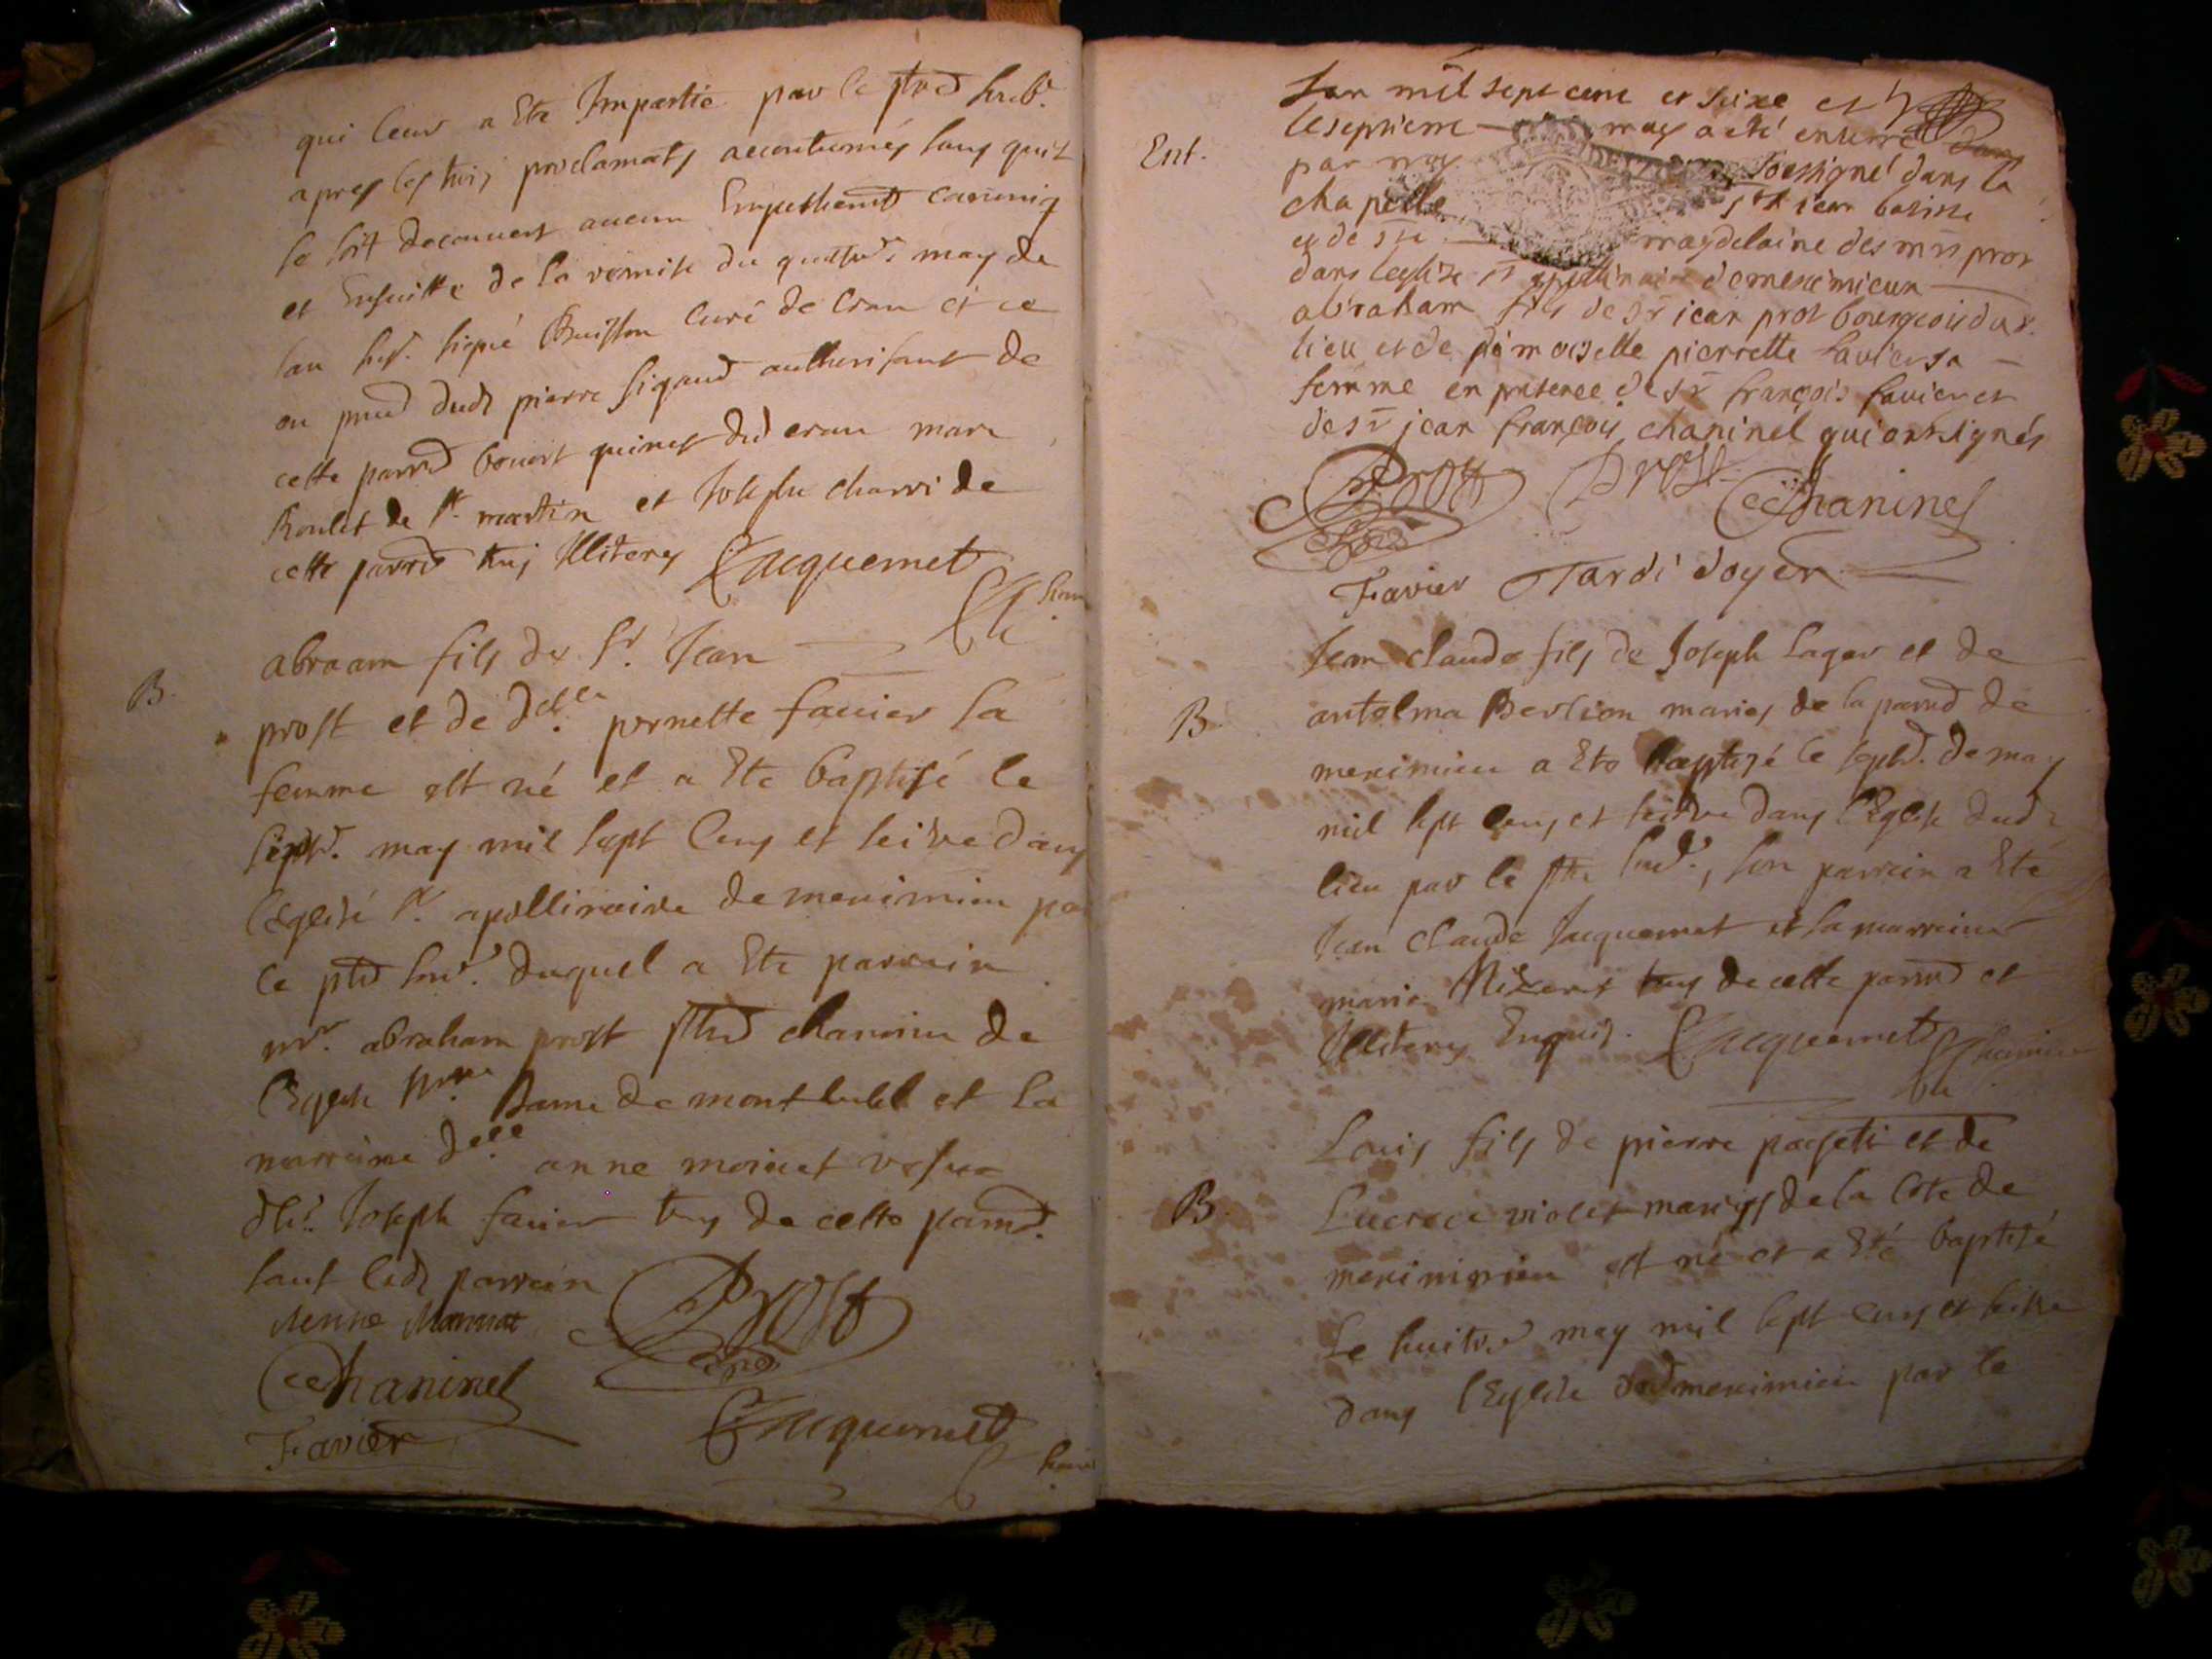 qui leur a Ete Impartie par le ptre
apres les trois proclamats accoutumés sans quil
se soit decouvert aucun Empechemt canoniq
et Ensuitte de la remise du may de
lan signé Buisson Curé de Cran et ce
en dudt pierre Sigaud authorisant de
cette parred benoit du cran marc
Roulet de st. martin et Joseph charvi de
cette parred tous Illiteres Jacquemet
B.
abraam fils de Sr. Jean
prost et de delle pernette favier sa
femme est né et a Ete baptisé le
sept. may mil sept Cens et seize dans
l'Eglise St. apollinaire de meximieu pa
le ptre duquel a Ete parrein
mr. abraham prost ptre chanoine de
l'Eglise Dame de montluel et la
marreine delle anne moinet vefve
Joseph favier tous de cette parred.
sauf ledt parrein
Prost
Chaninel
Favier
Jacquemet
lan mil sept cent et seize et
le septieme may a eté enterré dans
Ent.
par moy soussigné dans la
chapelle st jean batiste
et de ste magdelaine des mrs prot
dans leglise st appollinaire de meximieux
abraham fils de sr jean prot bourgeois du d.
lieu et de demoiselle pierrette favier sa
femme en presence de sr françois favier et
de sr jean françois chaninel qui ont signés
Prost Prost Chaninel
Favier Tardi doyen
Jean claude fils de Joseph Lager et de
B.
antelma Berlion maries de la parred de
meximieu a Ete baptizé le sept. de may
mil sept cens et seize dans l'Eglise dud
lieu par le ptre, son parrein a Ete
Jean Claude Jacquemet et la marreine
marie tous de cette parred et
Illiteres Enquis. Jacquemet
Louis fils de pierre pageti et de
B.
Lucrece violet maries de la Cote de
meximieu est né et a Eté baptisé
Le huit may mil sept Cens et seize
dans l'Eglise dud meximieu par le